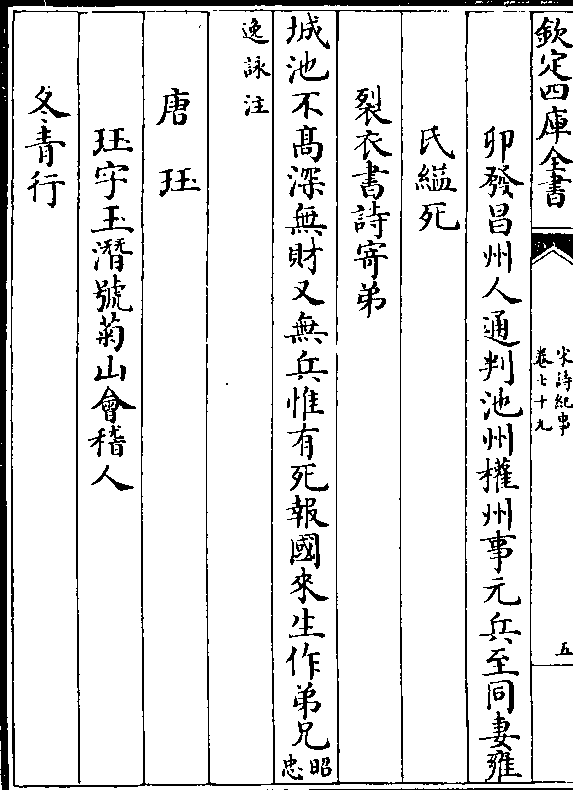 欽定四庫全書
宋詩紀事
卷七十九
五
卯發昌州人通判池州權州事元兵至同妻雍
氏縊死
裂衣書詩寄弟
城池不髙深無財又無兵惟有死報國來生作弟兄昭忠
逸詠注
唐珏
珏字玉潛號菊山會稽人
冬青行